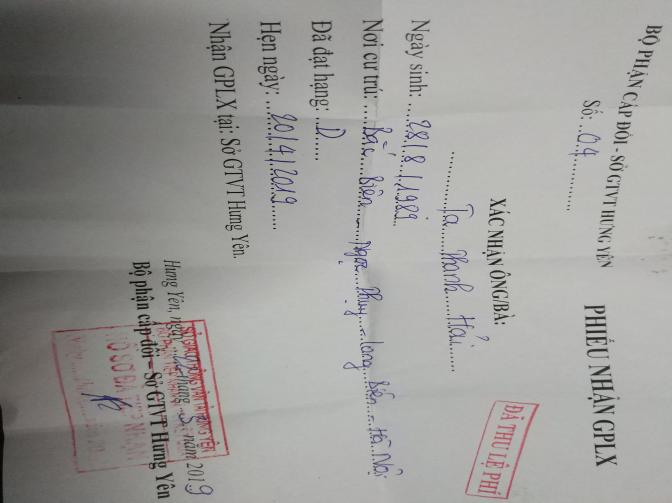 BỘ PHẬN CẤP ĐỔI - SỞ GTVT HƯNG YÊN
Số: ..04..............
PHIẾU NHẬN GPLX
ĐÃ THU LỆ PHÍ
XÁC NHẬN ÔNG/BÀ:
..........Tạ....Thanh....Hải.........
Ngày sinh: ....28/8/1989.
Nơi cư trú: ....Bắc...Biên....Ngọc...Thụy...Long...Biên...Hà Nội
Đã đạt hạng: ..D.....
Hẹn ngày: ...20/4/2019.......
Nhận GPLX tại: Sở GTVT Hưng Yên.
Hưng Yên, ngày tháng ..3.. năm 2019
Bộ phận cấp đổi – Sở GTVT Hưng Yên